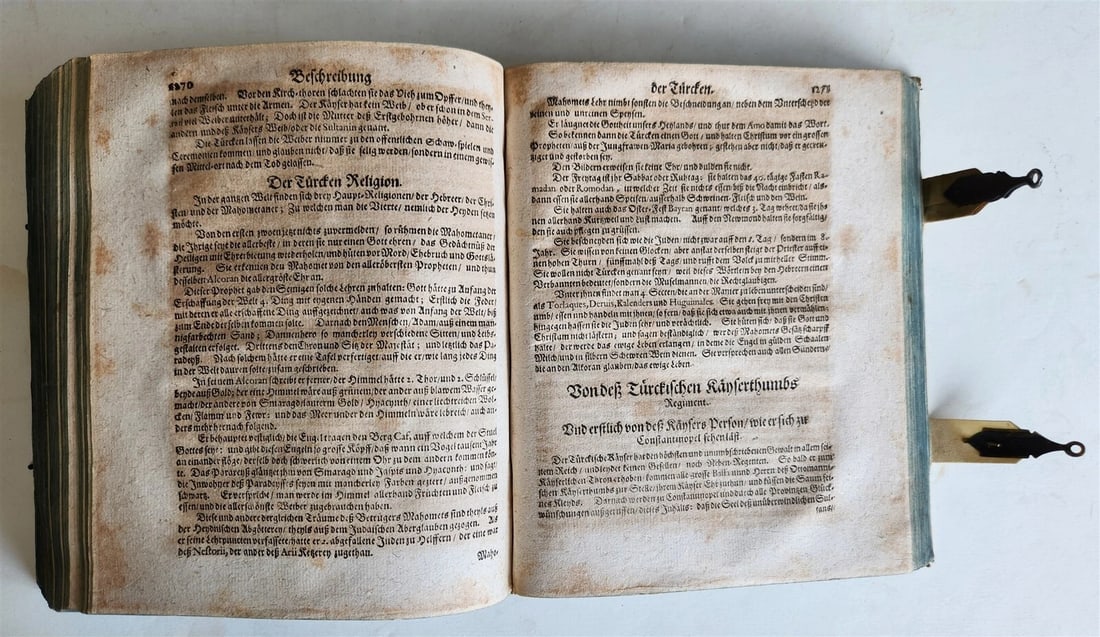 1270
Beschreibung
nach demselben. Vor den Kirch-thoren schlachten sie das Vieh zum Opffer/ und
ten das Fleisch unter die Armen. Der Käyser hat kein Weib / ob er schon in dem
viel Weiber unterhält; Doch ist die Mutter deß Erstgebohrnen höher/ dann die
andern und deß Käysers Weib/ oder die Sultanin genant.
Die Türcken lassen die Weiber nimmer zu den öffentlichen Schaw-spielen und
Ceremonien kommen/ und glauben nicht/ daß sie selig werden/ sondern in einem
sen Mittel-ort nach dem Tod gelassen.
Der Türcken Religion.
In der gantzen Welt finden sich drey Haupt-Religionen/ der Hebreer/ der Chri-
sten und der Mahometaner; Zu welchen man die Vierte/ nemlich der Heyden setzen
möchte.
Von den ersten zweyen jetzt nichts zuvermelden/ so rühmen die Mahometaner/
die Ihrige sey die allerbeste/ in deren sie nur einen Gott ehren/ das Gedächtnüß der
Heiligen mit Ehrerbietung wiederholen/ und hüten vor Mord/ Ehebruch und Gottslä-
sterung. Sie erkennen den Mahomet von den allerobersten Propheten/ und thun
desselben Alcoran die allergröste Ehr an.
Dieser Prophet gab den Seinigen solche Lehren zuhalten: Gott hätte zu Anfang der
Erschaffung der Welt 4. Ding mit eygenen Händen gemacht; Erstlich die Feder/
mit deren er alle erschaffene Ding auffgezeichnet/ auch was von Anfang der Welt/ biß
zum Ende derselben kommen solte. Darnach den Menschen/ Adam/ auß einem man-
nigfärbechten Sand; Dannenhero so mancherley verschiedene Sitten/ und Leibs-
gestalten erfolget. Drittens den Thron und Sitz der Majestät; und letztlich das Pa-
radeyß. Nach solchem hätte er eine Tafel verfertiget/ auff die er/ wie lang jedes Ding
in der Welt dauren solte/ zusam geschrieben.
In seinem Alcoran schreibt er ferner/ der Himmel hätte 2. Thor/ und 2. Schlüssel/
beyde auß Gold; der eine Himmel wäre auß grünem/ der ander auß blawem Wasser ge-
macht/ der ander von Smaragd/ Hyacynth/ einer liechten Wol-
cken/ Flamm und Fewr; und das Meer unter den Himmeln wäre lebreich/ auch an-
ders nicht hernach folgend.
Er behauptet vestiglich/ die Engel tragen den Berg Caf, auff welchem der Stuel
Gottes sey: und gibt diesen Engeln so grosse Köpff/ daß wann ein Vogel tausend Jahr
an einander flöge/ derselb doch schwerlich von einem Ohr zu dem andern kommen kön-
te. Das Paradeyß gläntzet ihm von Smaragd und Jaspis und Hyacynth: und sagt/
die Inwohner deß Paradeyß's seyen mit mancherley Farben geziert/ außgenommen
schwartz. Er verspricht/ man werde im Himmel allerhand Früchten und Fleisch zu
essen/ und die allerschönste Weiber zugebrauchen haben.
Diese und andere dergleichen Träume deß Betrügers Mahomets sind theyls auß
der Heydnischen Abgötterey/ theyls auß dem Judaischen Aberglauben gezogen. Als
er seine Lehrpuncten verfassete/ hatte er 2. abgefallene Juden zu Helffern/ der eine war
deß Nestorii, der ander deß Arii Ketzerey zugethan.
Maho-
der Türcken.
Mahomets Lehr nimbt sonsten die Beschneidung an/ neben dem Unterscheyd der
reinen und unreinen Speysen.
Er läugnet die Gottheit unsers Heylands/ und thut dem Arrio damit das Wort.
So bekennen dann die Türcken einen Gott/ und halten Christum vor ein grossen
Propheten/ auß der Jungfrawen Maria gebohren; gestehen aber nicht/ daß er gecreu-
tziget und gestorben sey.
Den Bildern erweisen sie keine Ehr/ und dulden sie nicht.
Der Freytag ist ihr Sabbat oder Ruhtag: sie halten das 40. tägige Fasten Ra-
madan oder Romodan, in welcher Zeit sie nichts essen/ biß die Nacht einbricht/ als-
dann essen sie allerhand Speisen/ ausserhalb Schweinen-Fleisch und den Wein.
Sie halten auch das Oster-Fest Bayran genant/ welches 3. Tag wehret/ da sie ih-
nen allerhand Kurtzweil und Lust machen. Auff den Newmond halten sie sorgfältig/
den sie auch pflegen zu grüssen.
Sie beschneyden sich wie die Juden/ nicht zwar auff den 8. Tag/ sondern im 8.
Jahr. Sie wissen von keinen Glocken/ aber anstat derselben steiget der Priester auff ei-
nen hohen Thurn/ fünffmahl deß Tags/ und rufft dem Volck zu mit heller Stimm.
Sie wollen nicht Türcken genant seyn/ weil dieses Wörtlein bey den Hebreern einen
Verbannten bedeutet/ sondern die Muselmannen/ die Rechtglaubigen.
Unter ihnen findet man 4. Secten/ die an der Manier zu leben unterscheiden sind/
als Torlaques, Deruis, Kalenders und Huguimales. Sie gehen frey mit den Christen
umb/ essen und handeln mit ihnen/ so fern/ daß sie sich etwa auch mit ihnen vermählen:
hingegen hassen sie die Juden sehr/ und verächtlich. Sie hüten sich/ daß sie Gott und
Christum nicht lästern/ und sagen beständiglich/ wer deß Mahomets Gesätz scharpff
halte/ der werde das ewige Leben erlangen/ in deme die Engel in gülden Schaalen
Milch/ und in silbern Wein dienen. Sie versprechen auch allen Sündern/
die an den Alkoran glauben/ das ewige Leben.
Von deß Türckischen Käyserthumbs
Regiment.
Und erstlich von deß Käysers Person/ wie er sich zu
Constantinopel sehen läst.
Der Türckische Käyser hat den höchsten und unumbschriebenen Gewalt in allem sei-
nem Reich/ und leydet keinen Gesellen/ noch Neben-Regenten. So bald er zum
Käyserlichen Thron erhoben/ kommen alle grosse und Herren deß Ottomanni-
schen Käyserthumbs zur Stelle/ ihrem Käyser Ehr zuthun/ und küssen die Saum sei-
nes Kleyds. Darnach werden zu Constantinopel und durch alle Provintzen Glück-
wünschungen außgeruffen/ dieses Inhalts: daß die Seel deß unüberwindlichen Sul-
tans/